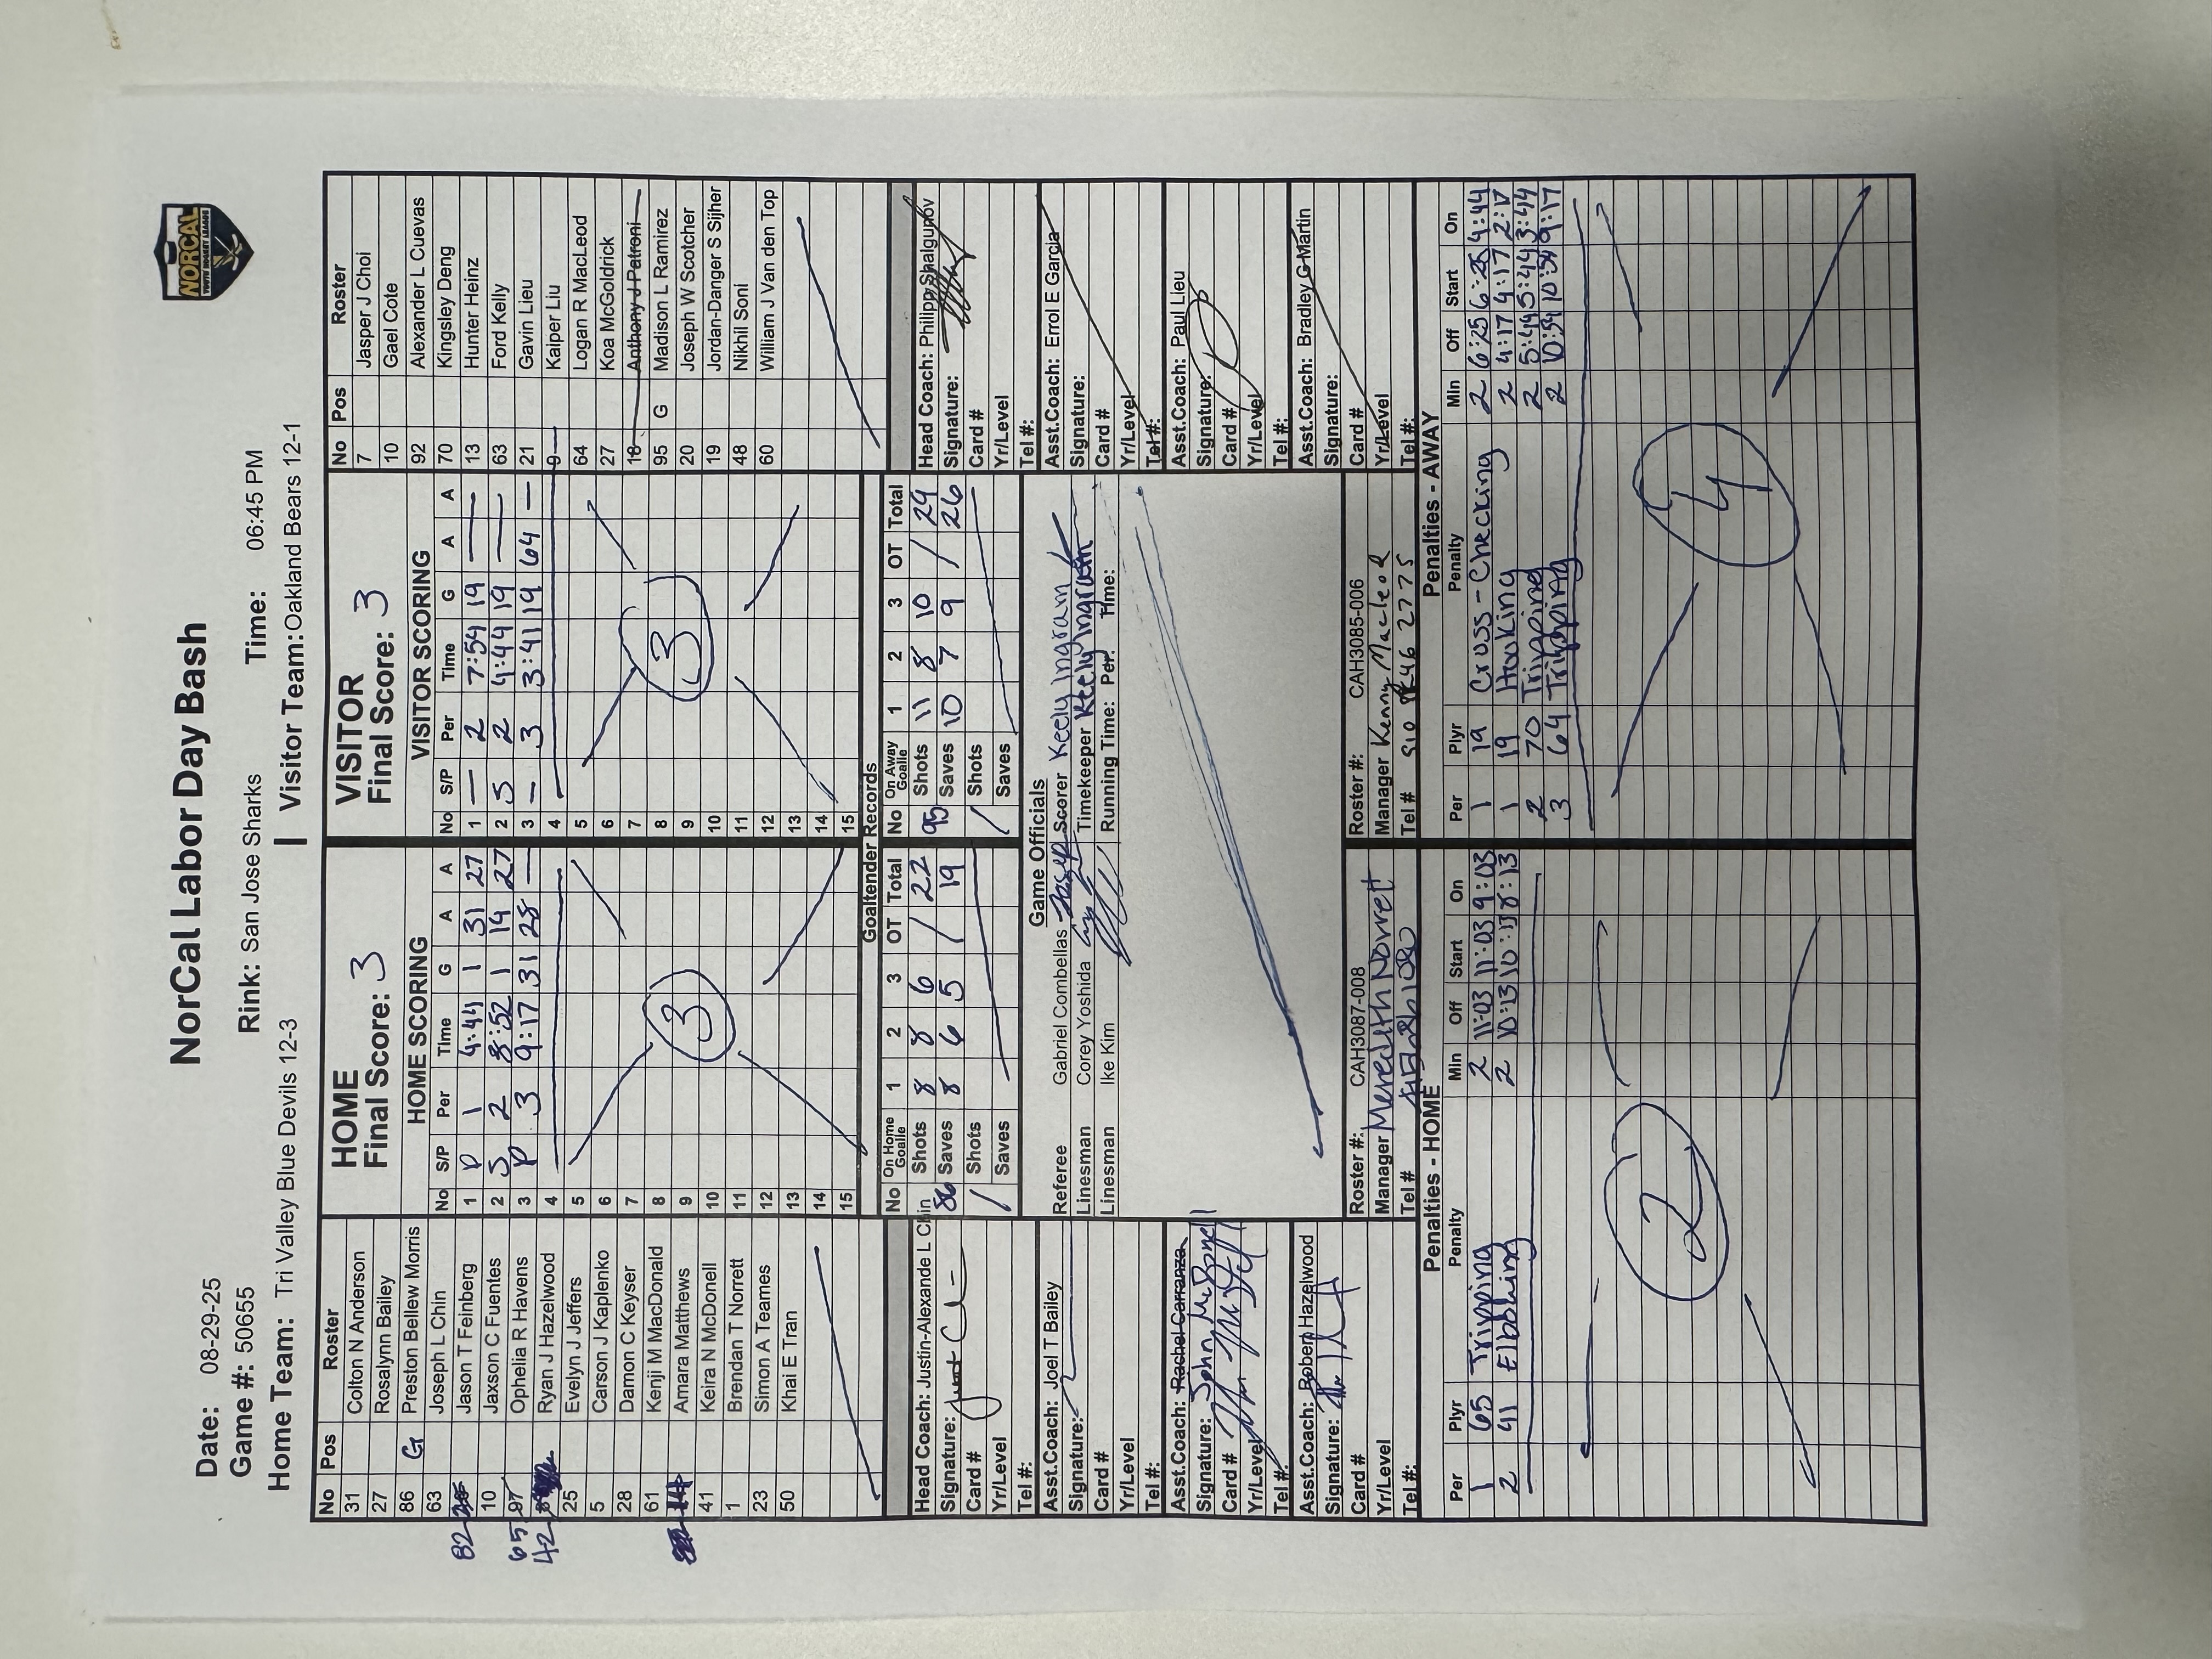 NORCAL
YOUTH HOCKEY LEAGUE
NorCal Labor Day Bash
Date: 08-29-25
Game #: 50655
Rink: San Jose Sharks
Time: 06:45 PM
Home Team: Tri Valley Blue Devils 12-3
Visitor Team: Oakland Bears 12-1
No Pos Roster
31 Colton N Anderson
27 Rosalynn Bailey
86 G Preston Bellew Morris
63 Joseph L Chin
82 Jason T Feinberg
10 Jaxson C Fuentes
65 97 Ophelia R Havens
42 Ryan J Hazelwood
25 Evelyn J Jeffers
5 Carson J Kaplenko
28 Damon C Keyser
61 Kenji M MacDonald
Amara Matthews
41 Keira N McDonell
1 Brendan T Norrett
23 Simon A Teames
50 Khai E Tran
HOME
Final Score: 3
HOME SCORING
No S/P Per Time G A A
1 P 1 4:44 1 31 27
2 S 2 8:52 1 14 27
3 P 3 9:17 31 28 —
4
5
6
7
8 3
9
10
11
12
13
14
15
VISITOR
Final Score: 3
VISITOR SCORING
No S/P Per Time G A A
1 — 2 7:54 19 —
2 S 2 4:44 19 —
3 — 3 3:41 19 64 —
4
5
6
7
8 3
9
10
11
12
13
14
15
No Pos Roster
7 Jasper J Choi
10 Gael Cote
92 Alexander L Cuevas
70 Kingsley Deng
13 Hunter Heinz
63 Ford Kelly
21 Gavin Lieu
9 Kaiper Liu
64 Logan R MacLeod
27 Koa McGoldrick
18 Anthony J Petroni
95 G Madison L Ramirez
20 Joseph W Scotcher
19 Jordan-Danger S Sijher
48 Nikhil Soni
60 William J Van den Top
Goaltender Records
No On Home Goalie 1 2 3 OT Total
86 Shots 8 8 6 / 22
Saves 8 6 5 / 19
/ Shots
Saves
No On Away Goalie 1 2 3 OT Total
95 Shots 11 8 10 / 29
Saves 10 7 9 26
/ Shots
Saves
Head Coach: Justin-Alexande L Chin
Signature:
Card #
Yr/Level
Tel #:
Asst.Coach: Joel T Bailey
Signature:
Card #
Yr/Level
Tel #:
Asst.Coach: Rachel Carranza
Signature: John McDonell
Card #
Yr/Level
Tel #:
Asst.Coach: Robert Hazelwood
Signature:
Card #
Yr/Level
Tel #:
Game Officials
Referee Gabriel Combellas
Scorer Keely Ingram
Linesman Corey Yoshida
Timekeeper Keely Ingram
Linesman Ike Kim
Running Time: Per. Time:
Roster #: CAH3087-008
Manager Meredith Norrett
Tel #
Roster #: CAH3085-006
Manager Kenny Macleod
Tel # 510 2775
Head Coach: Philipp Shalgunov
Signature:
Card #
Yr/Level
Tel #:
Asst.Coach: Errol E Garcia
Signature:
Card #
Yr/Level
Tel #:
Asst.Coach: Paul Lieu
Signature:
Card #
Yr/Level
Tel #:
Asst.Coach: Bradley G Martin
Signature:
Card #
Yr/Level
Tel #:
Penalties - HOME
Per Plyr Penalty Min Off Start On
1 65 Tripping 2 11:03 11:03 9:03
2 41 Elbowing 2 10:13 10:13 8:13
2
Penalties - AWAY
Per Plyr Penalty Min Off Start On
1 19 Cross-Checking 2 6:25 6:25 4:44
1 19 Hooking 2 4:17 4:17 2:17
2 70 Tripping 2 5:44 5:44 3:44
3 64 Tripping 2 10:54 10:54 9:17
4